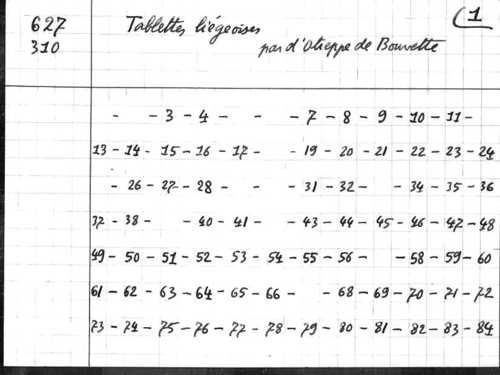 627 Tablettes liégeoises (1
310 par d'Otreppe de Bouvette
- - 3 - 4 - - - 7 - 8 - 9 - 10 - 11 -
13 - 14 - 15 - 16 - 17 - - 19 - 20 - 21 - 22 - 23 - 24
- 26 - 27 - 28 - - - 31 - 32 - - 34 - 35 - 36
37 - 38 - - 40 - 41 - - 43 - 44 - 45 - 46 - 47 - 48
49 - 50 - 51 - 52 - 53 - 54 - 55 - 56 - - 58 - 59 - 60
61 - 62 - 63 - 64 - 65 - 66 - - 68 - 69 - 70 - 71 - 72
73 - 74 - 75 - 76 - 77 - 78 - 79 - 80 - 81 - 82 - 83 - 84